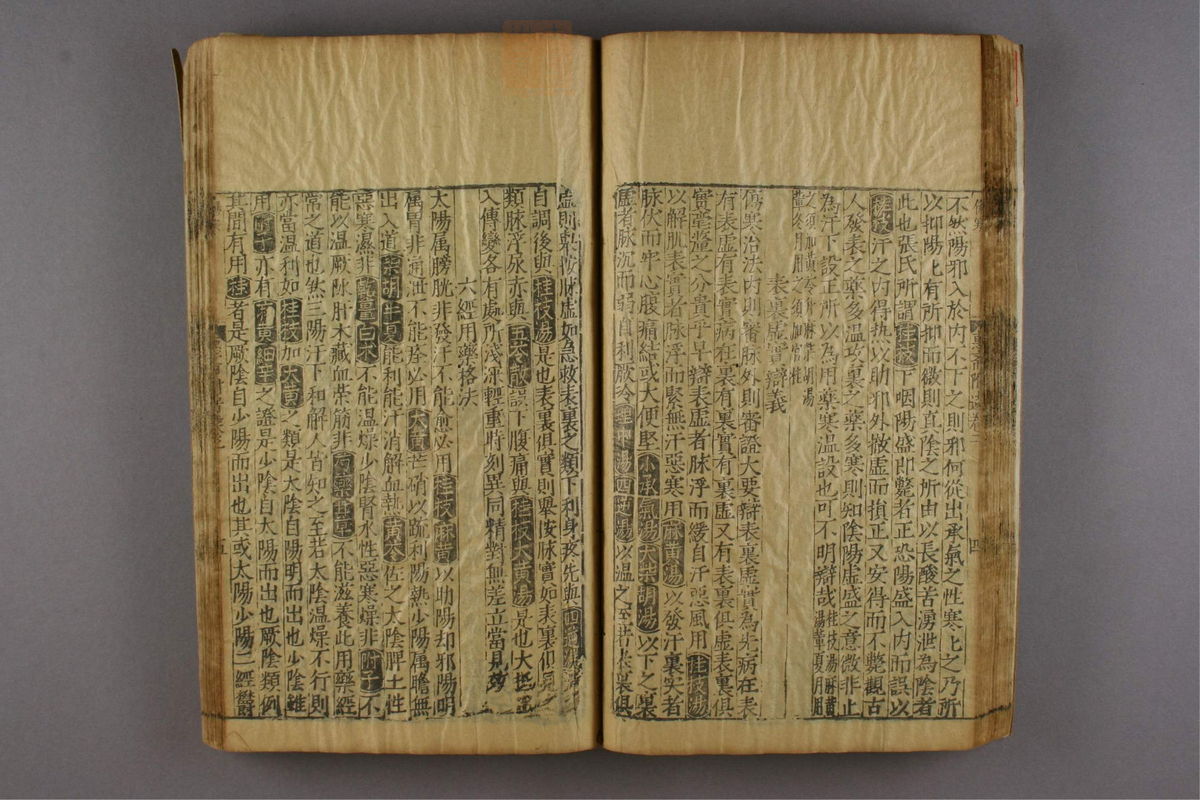 不然陽邪入於內不下之則邪何從出承氣之性寒上之乃所
以抑陽上有所抑而微則真陰之所由以長酸苦湧泄為陰者
此也張氏所謂桂枝下咽陽盛即斃者正恐陽盛入內而誤以
桂枝汗之內得热以助邪外披虛而損正又安得而不斃觀古
人發表之藥多温攻裏之藥多寒則知陰陽虛盛之意微非止
為汗下設正所以為用藥寒温設也可不明辯哉桂枝湯麻黃湯董夏月用
之須加黃芩小柴胡湯董冬月用之須加官桂
表裏虛實辯義
傷寒治法內則審脉外則審證大要辯表裏虛實為先病在表
有表虛有表實病在裏有裏實有裏虛又有表裏俱虛表裏俱
實藥證之分貴乎早辯表虛者脉浮而緩自汗惡風用桂枝湯
以解肌表實者脉浮而緊無汗惡寒用麻黃湯以發汗裏实者
脉伏而牢心腹痛結或大便堅小承氣湯大柴胡湯以下之裏
虛者脉沉而弱自利厥冷理中湯四逆湯以温之至若表裏俱
虛則舉按脉虛如急救表裏之類下利身疼先與四逆湯清
自調後與桂枝湯是也表裏俱實則舉按脉實如表裏
類脉浮尿赤與五苓散誤下腹痛與桂枝大黃湯是也大抵
入傳變各有處所淺深輕重時刻異同精對無差立當見效
六經用藥格法
太陽属膀胱非發汗不能愈必用桂枝麻黃以助陽却邪陽明
属胃非通泄不能痊必用大黃芒硝以疏利陽熱少陽属膽無
出入道柴胡半夏能利能汗消解血熱黃芩佐之太陰脾土性
惡寒濕非乾薑白术不能温燥少陰腎水性惡寒燥非附子不
能以温厥陰肝木藏血荣筋非芍藥甘草不能滋養此用藥經
常之道也然三陽汗下和解人皆知之至若太陰温燥不行則
亦當温利如桂枝加大黃之類是太陰自陽明而出也少陰雖
用附子亦有麻黃細辛之證是少陰自太陽而出也厥陰類例
其間有用桂者是厥陰自少陽而出也其或太陽少陽二經欝